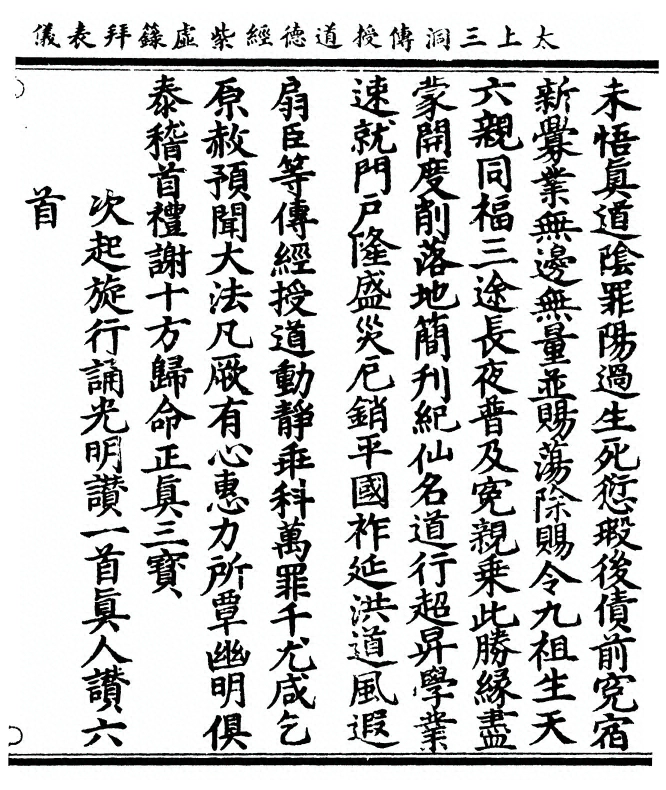 太上三洞傳授道德經紫虛籙拜表儀
未悟眞道陰罪陽過生死愆瑕後債前寃宿
新釁業無邊無量並賜蕩除賜令九祖生天
六親同福三途長夜普及寃親乗此勝縁盡
蒙開度削落地簡刋紀仙名道行超昇學業
速就門戸隆盛災厄銷平國祚延洪道風遐
扇臣等傳經授道動靜乖科萬罪千尤咸乞
原赦預聞大法凡厥有心惠力所覃幽明俱
泰稽首禮謝十方歸命正眞三寳
次起旋行誦光明讃一首眞人讃六
首